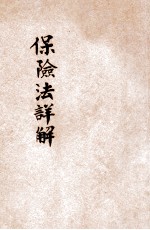 保險法詳解